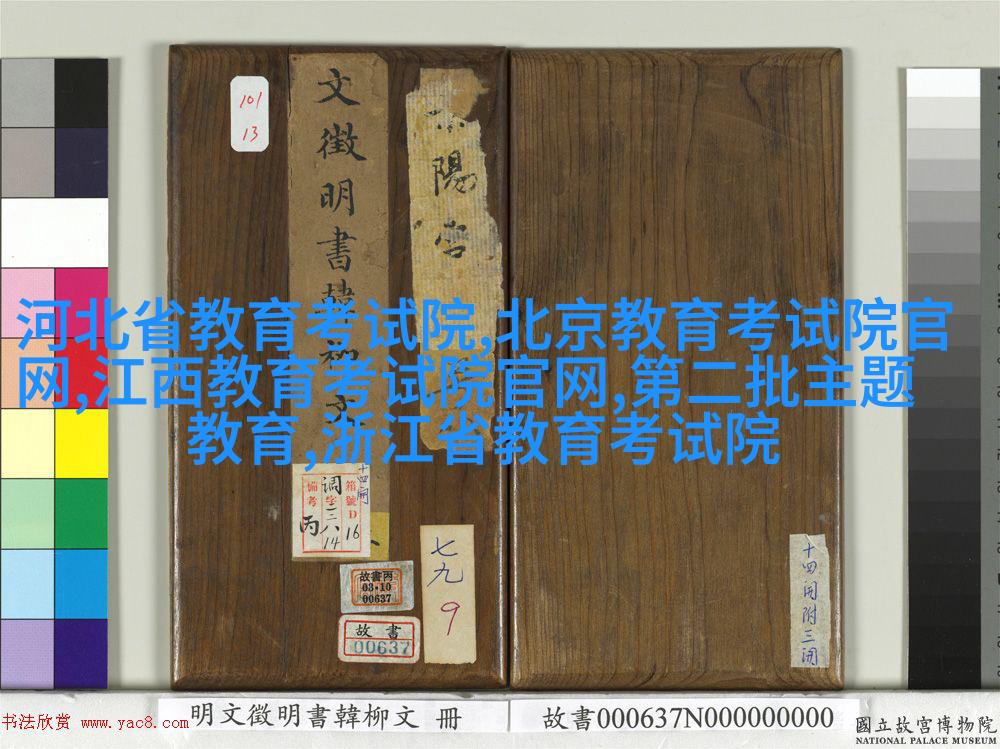 101
13
文徵明書韓柳文
陽宮
河北省教育考试院,北京教育考试院官
网,江西教育考试院官网,第二批主题
教育,浙江省教育考试院
十四開
備考
丙
调字三八
14
箱號D
16
故書丙
03·10
00637
故書
00637
七九
9
十四開附三開
明文徵明書韓柳文 冊
故書000637N000000000
國立故宮博物院
NATIONAL PALACE MUSEUM
书法欣赏 www.yac8.com